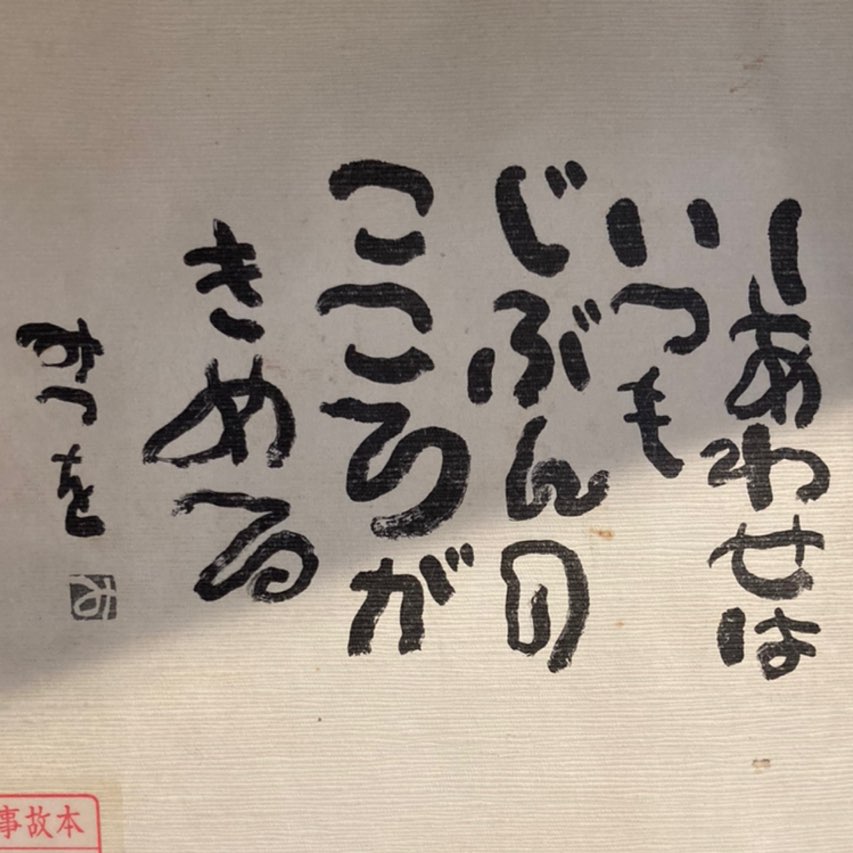 しあわせは
いつも
じぶんの
こころが
きめる
みつを
事故本